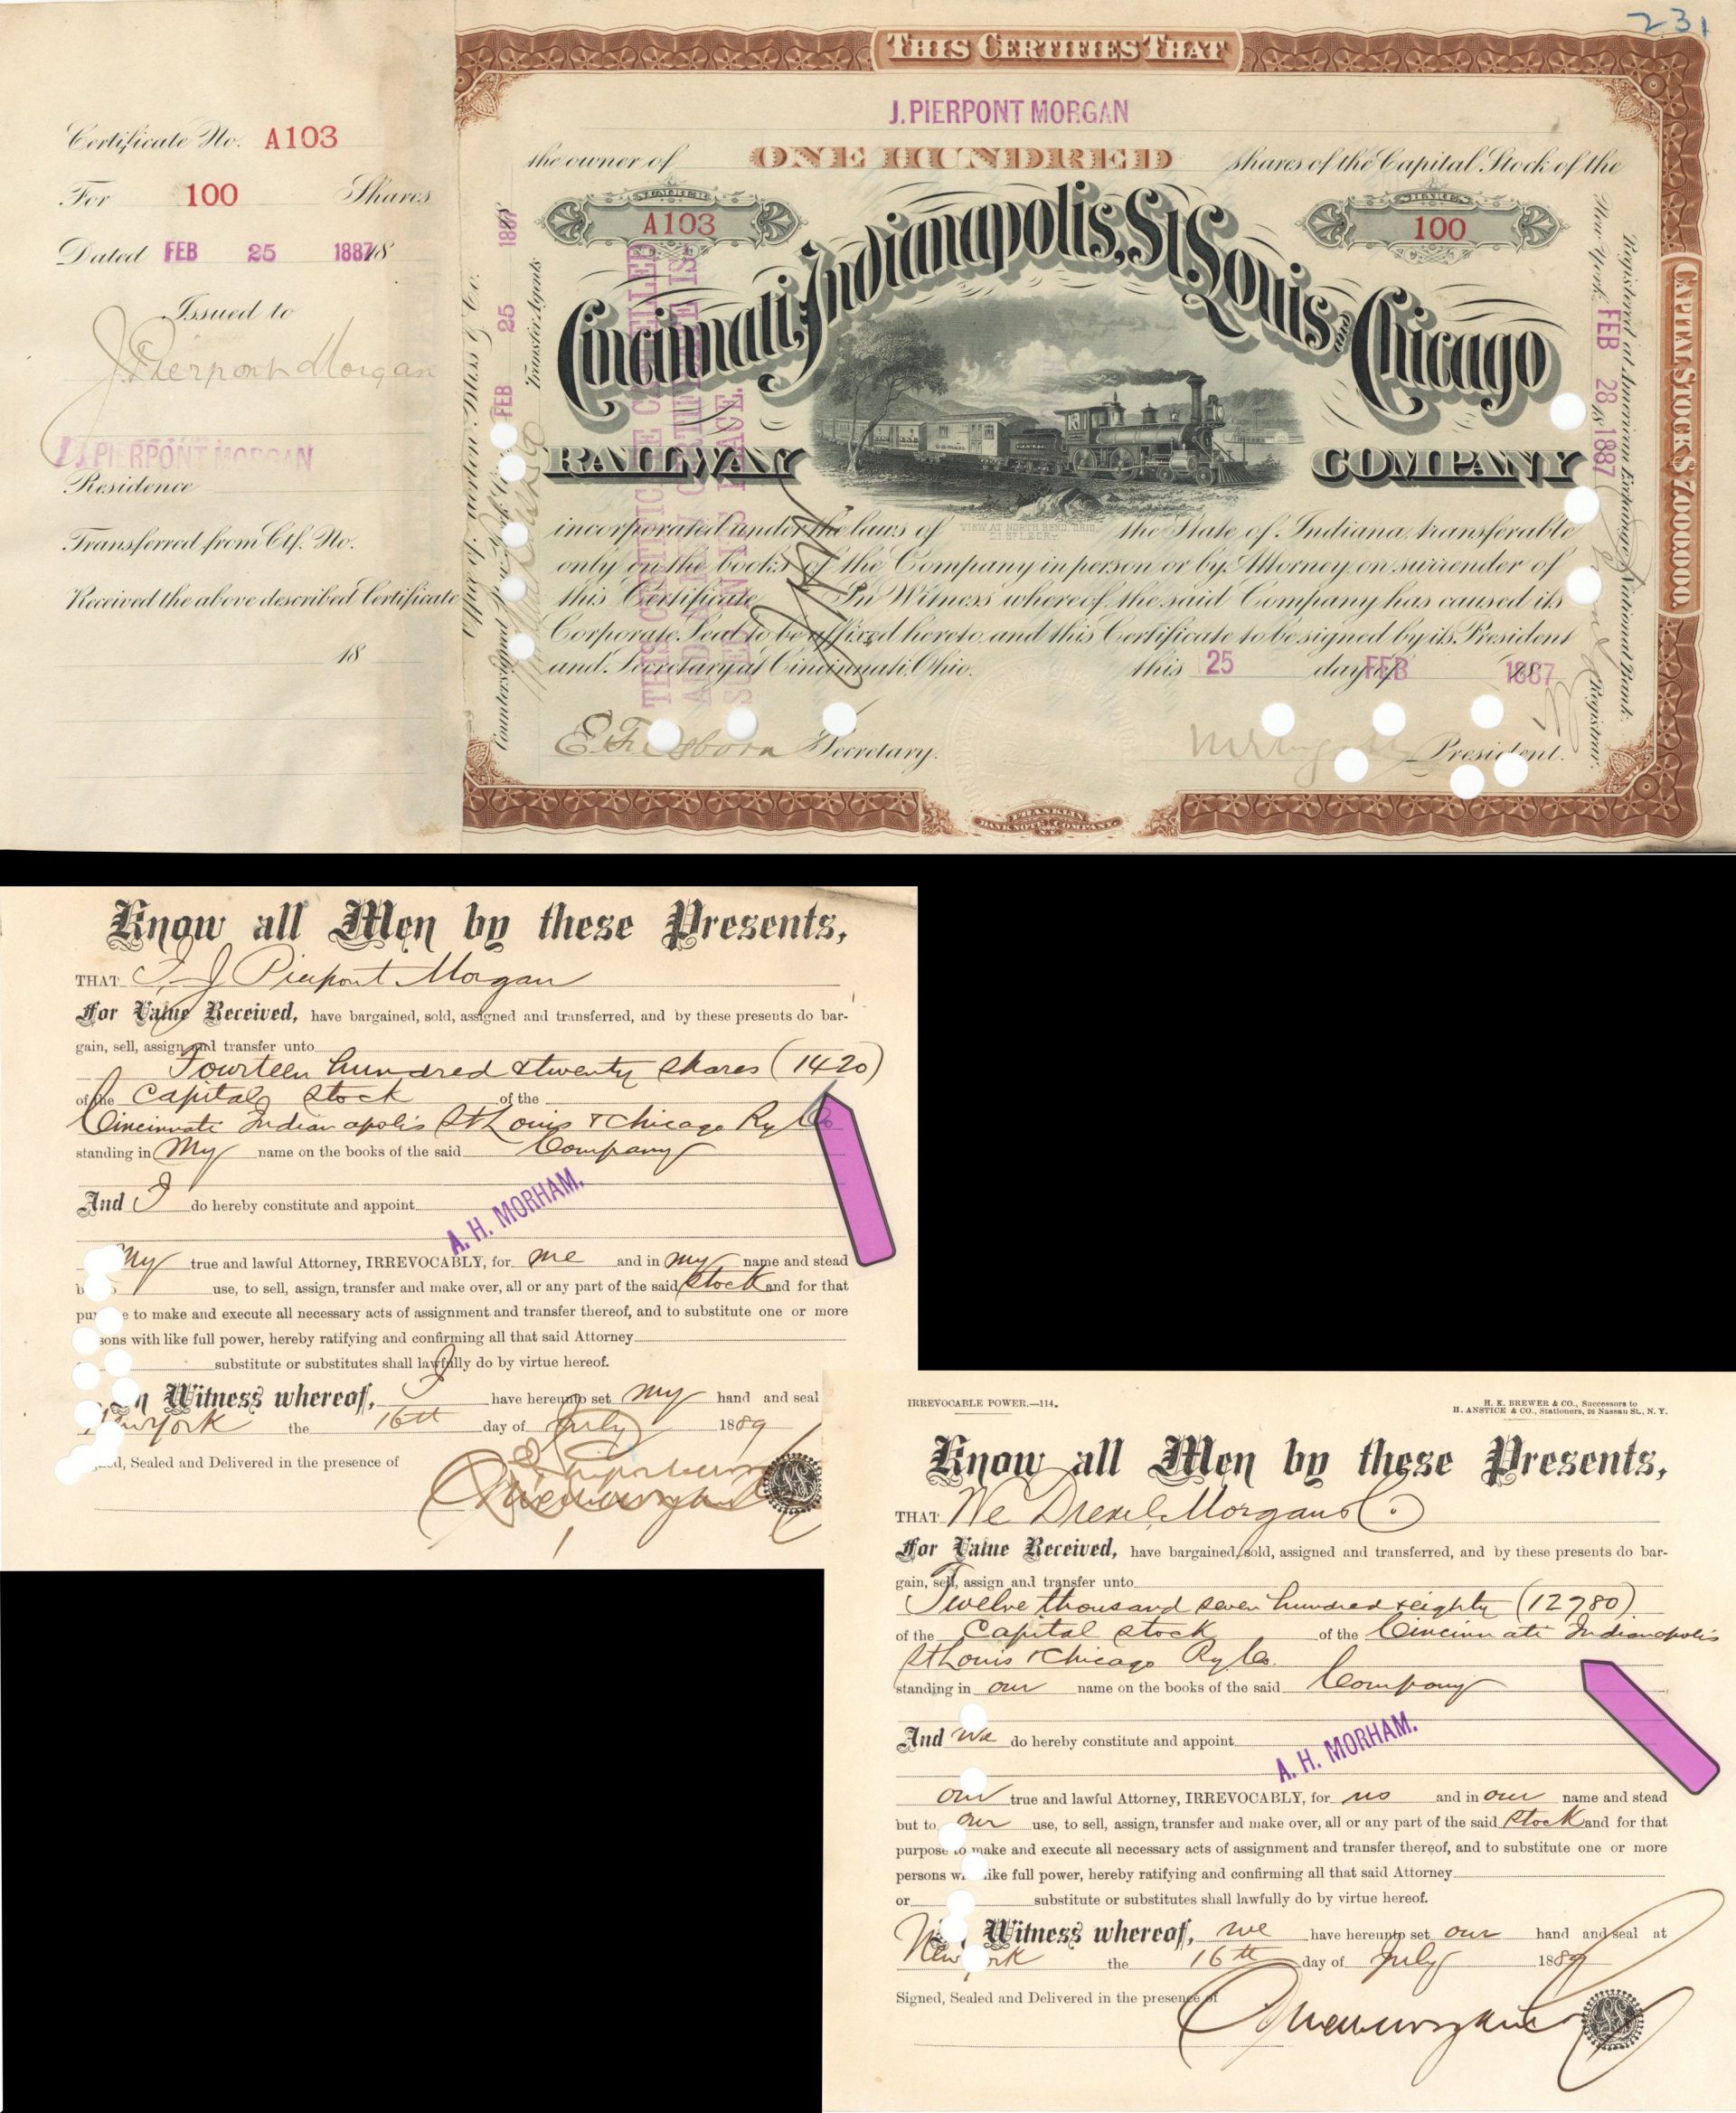 231
THIS CERTIFIES THAT
J. PIERPONT MORGAN
the owner of ONE HUNDRED shares of the Capital Stock of the
NUMBER
A103
SHARES
100
Cincinnati, Indianapolis, St. Louis and Chicago
RAILWAY COMPANY
VIEW AT NORTH BEND, OHIO.
incorporated under the laws of the State of Indiana, transferable
only on the books of the Company in person or by Attorney on surrender of
this Certificate. In Witness whereof, the said Company has caused its
Corporate Seal to be affixed hereto and this Certificate to be signed by its President
and Secretary at Cincinnati, Ohio. this 25 day of FEB 1887
Secretary.
President.
FRANKLIN
BANK NOTE COMPANY
N.Y.
CAPITAL STOCK $7,000,000.
Registered at American Exchange National Bank.
New York, FEB 28 18 1887
Registrar.
Countersigned
FEB 25 1887
Transfer Agents
THIS CERTIFICATE CANCELLED
AND A NEW CERTIFICATE IS-
SUED IN ITS PLACE.
Certificate No. A103
For 100 Shares
Dated FEB 25 1887 18
Issued to
J. Pierpont Morgan
J. PIERPONT MORGAN
Residence
Transferred from Ctf. No.
Received the above described Certificate
18
Know all Men by these Presents,
THAT I, J Pierpont Morgan
For Value Received, have bargained, sold, assigned and transferred, and by these presents do bar-
gain, sell, assign and transfer unto
Fourteen hundred & twenty shares (1420)
of the Capital Stock of the
Cincinnati Indianapolis St Louis & Chicago Ry Co
standing in My name on the books of the said Company
And I do hereby constitute and appoint
A. H. MORHAM.
My true and lawful Attorney, IRREVOCABLY, for me and in my name and stead
use, to sell, assign, transfer and make over, all or any part of the said Stock and for that
e to make and execute all necessary acts of assignment and transfer thereof, and to substitute one or more
sons with like full power, hereby ratifying and confirming all that said Attorney
substitute or substitutes shall lawfully do by virtue hereof.
Witness whereof, I have hereunto set my hand and seal
the 16th day of July 1889
Sealed and Delivered in the presence of
IRREVOCABLE POWER.—114.
H. K. BREWER & CO., Successors to
H. ANSTICE & CO., Stationers, 26 Nassau St., N. Y.
Know all Men by these Presents,
THAT We Drexel, Morgan & Co.
For Value Received, have bargained, sold, assigned and transferred, and by these presents do bar-
gain, sell, assign and transfer unto
Twelve thousand seven hundred & eighty (12780)
of the Capital Stock of the Cincinnati Indianapolis
St Louis & Chicago Ry Co.
standing in our name on the books of the said Company
And we do hereby constitute and appoint
A. H. MORHAM.
our true and lawful Attorney, IRREVOCABLY, for us and in our name and stead
but to our use, to sell, assign, transfer and make over, all or any part of the said Stock and for that
purpose to make and execute all necessary acts of assignment and transfer thereof, and to substitute one or more
persons like full power, hereby ratifying and confirming all that said Attorney
or substitute or substitutes shall lawfully do by virtue hereof.
Witness whereof, we have hereunto set our hand and seal at
New York the 16th day of July 1889
Signed, Sealed and Delivered in the presence of